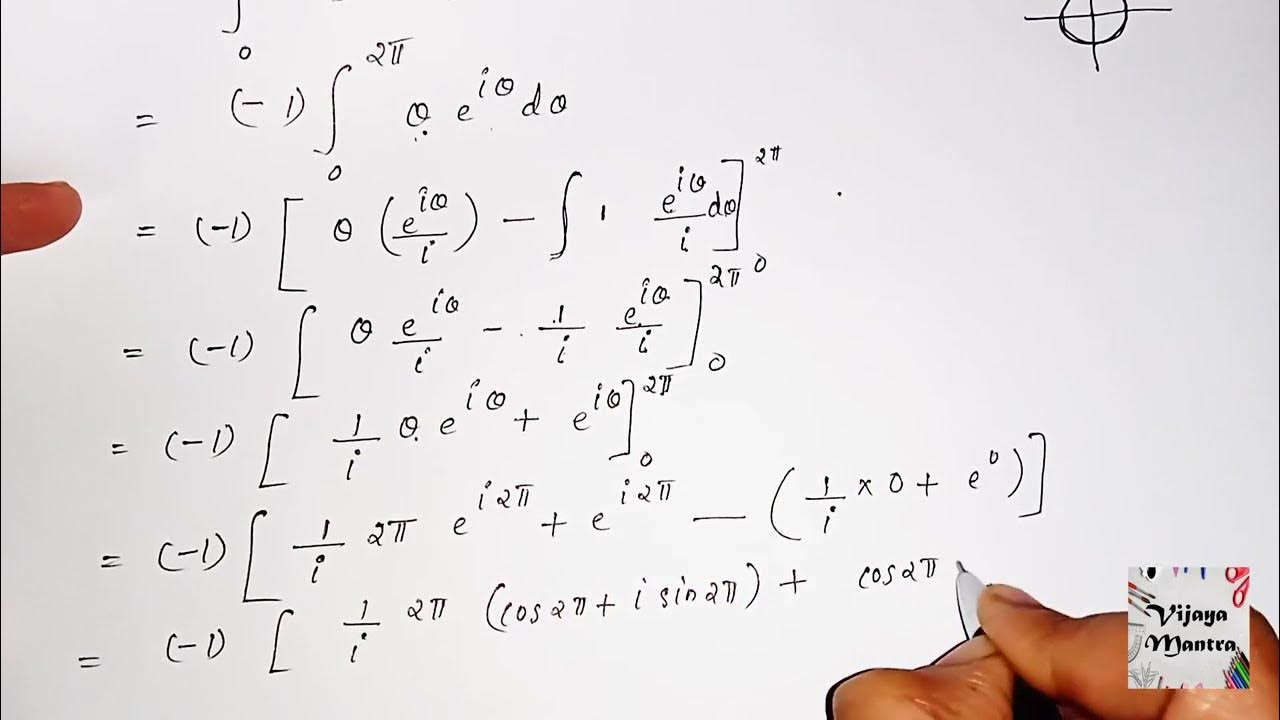 ∫₀
= (-1) ∫₀^{2π} θ e^{iθ} dθ
= (-1) [ θ (e^{iθ}/i) - ∫ 1 e^{iθ}/i dθ ]₀^{2π}
= (-1) [ θ e^{iθ}/i - 1/i e^{iθ}/i ]₀^{2π}
= (-1) [ 1/i θ e^{iθ} + e^{iθ} ]₀^{2π}
= (-1) [ 1/i 2π e^{i2π} + e^{i2π} - (1/i × 0 + e^0) ]
= (-1) [ 1/i 2π (cos2π + i sin2π) + cos2π
Vijaya
Mantra